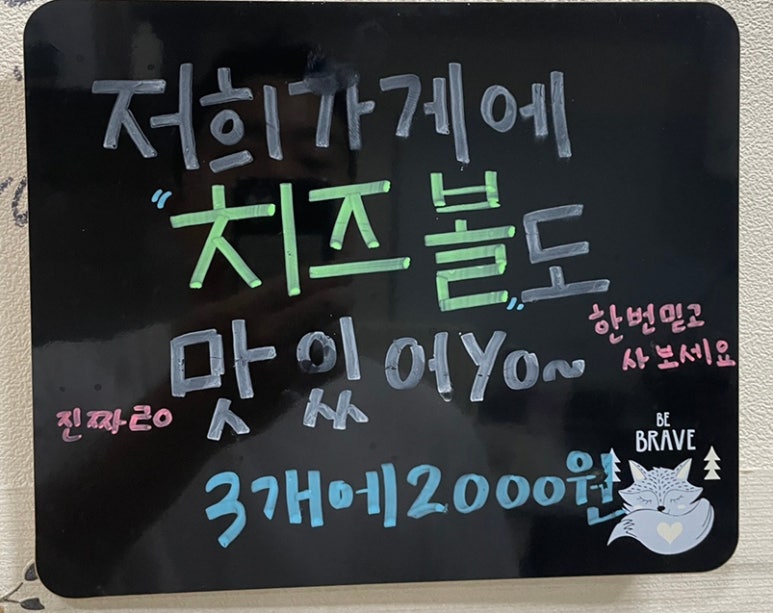 저희가게에
"치즈볼"도
맛있어yo~
한번믿고
사보세요
진짜루
3개에2000원
BE
BRAVE